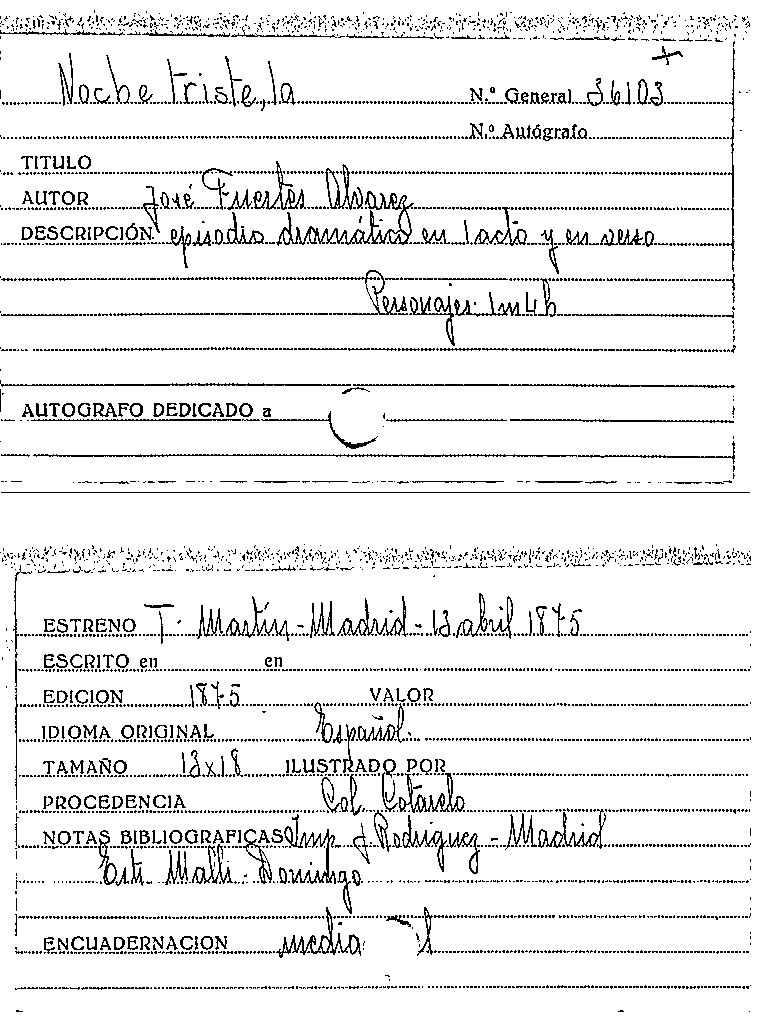 Noche triste, la
N.º General 36103
N.º Autógrafo
TITULO
AUTOR José Fuertes Alvarez
DESCRIPCIÓN episodio dramático en 1 acto y en verso
Personajes: 1m 4h
AUTOGRAFO DEDICADO a
ESTRENO T. Martín - Madrid - 13 abril 1875
ESCRITO en en
EDICION 1875 VALOR
IDIOMA ORIGINAL Español.
TAMAÑO 13x18 ILUSTRADO POR
PROCEDENCIA Col. Cotarelo
NOTAS BIBLIOGRAFICAS Imp J. Rodríguez - Madrid
Domingo
ENCUADERNACION media